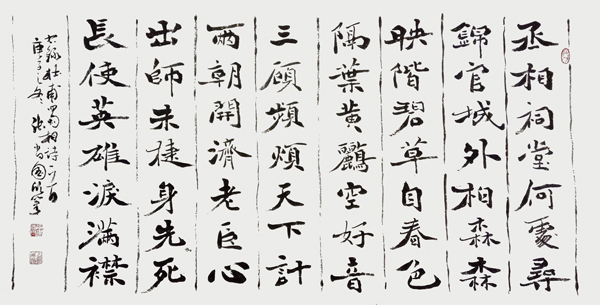 丞相祠堂何處尋
錦官城外柏森森
映階碧草自春色
隔葉黃鸝空好音
三顧頻煩天下計
兩朝開濟老臣心
出師未捷身先死
長使英雄淚滿襟
錄杜甫蜀相詩一首
庚子之冬